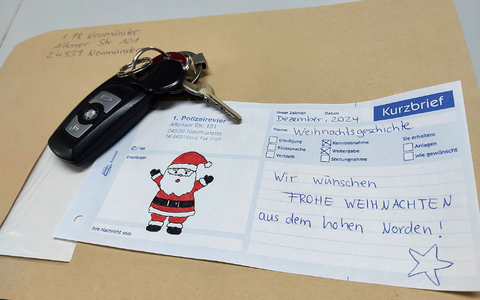 1. PR Neumünster
Altonaer Str. 101
24539 Neumünster
1. Polizeirevier
Altonaer Str. 101
24539 Neumünster
Unser Zeichen
Datum
Kurzbrief
Dezember, 2024
Thema:
Weihnachtsgeschichte
Sie erhalten:
Erledigung
Kenntnisnahme
Anlagen
Rücksprache
Weitergabe
wie gewünscht
Verbleib
Stellungnahme
Empfänger
Wir wünschen
FROHE WEIHNACHTEN
aus dem hohen Norden!
Ihre Nachricht vom: